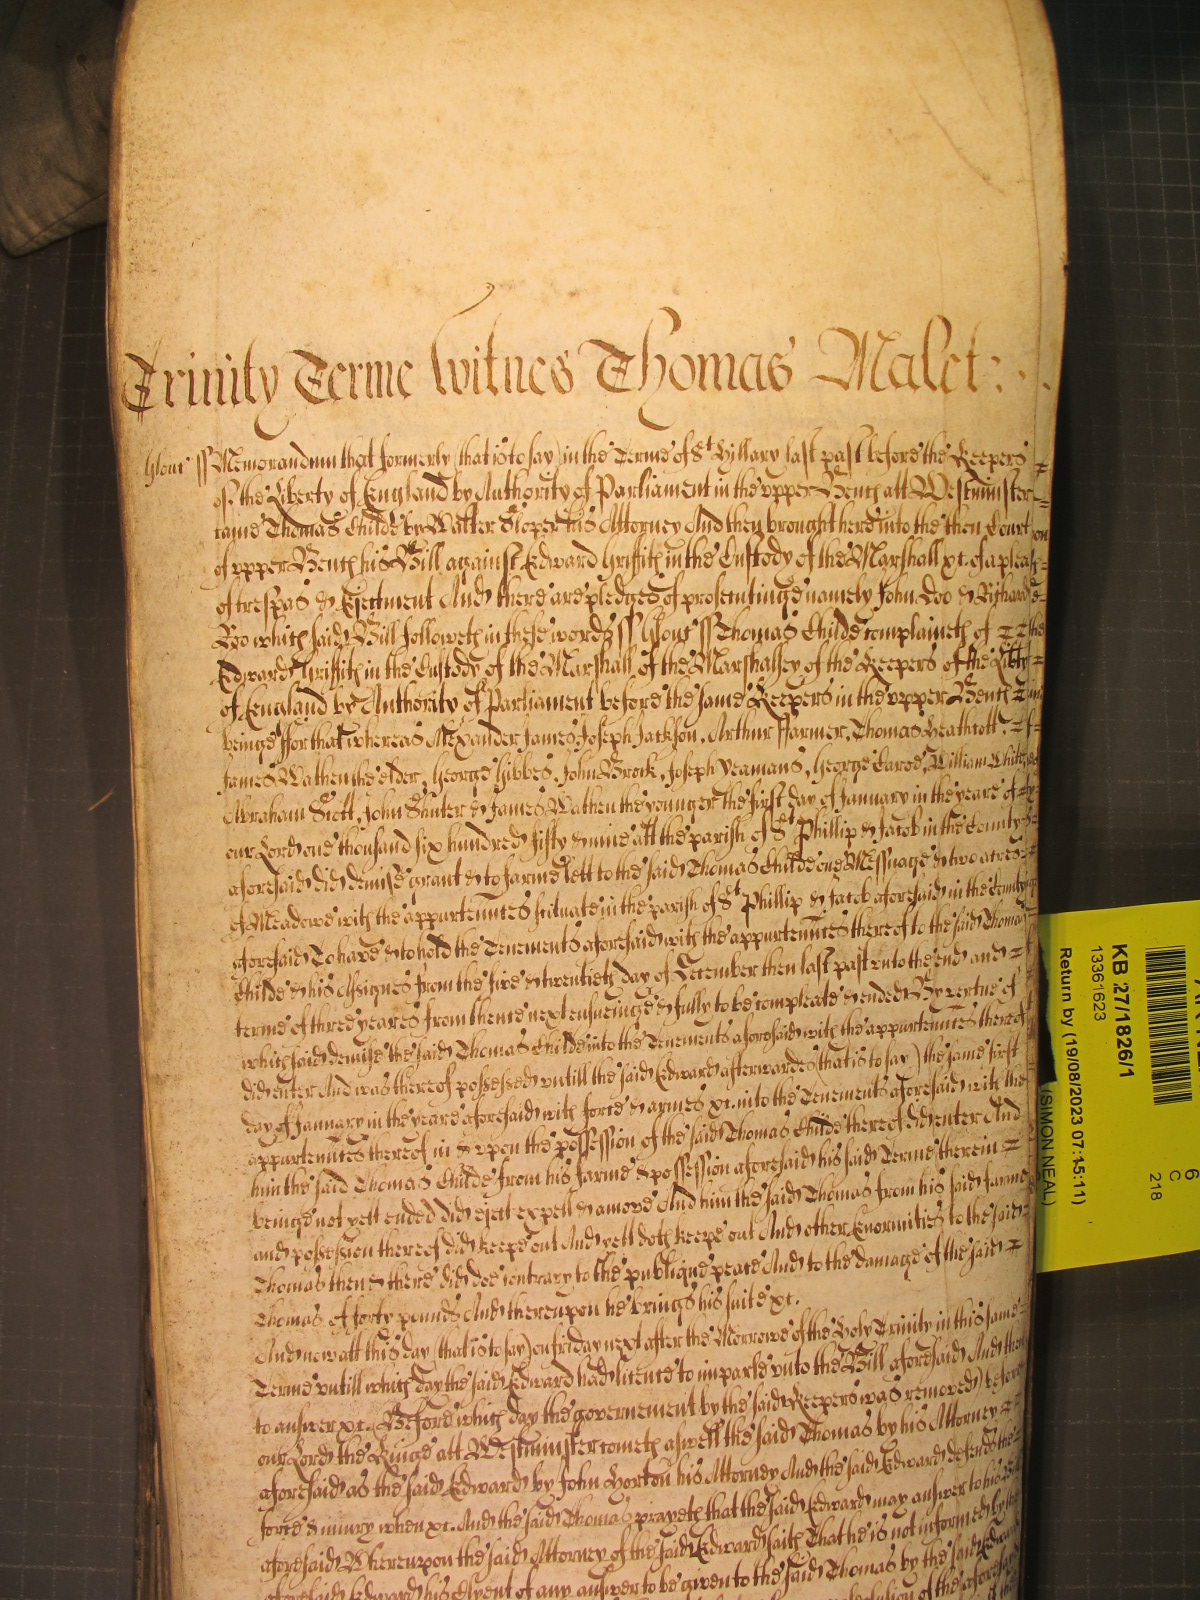 Trinity Terme Witnes Thomas Malet:
Glouc ss Memorandum that formerly (that is to say) in the Terme of St Hillary last past before the Keepers
of the Liberty of England by Authority of Parliament in the upper Bench att Westminster
came Thomas Childe by Walter Sloper his Attorney And then brought here into the then Court
of upper Bench his Bill against Edward Griffith in the Custody of the Marshall xc. of a plea
of trespas & Ejectment And there are pledges of prosecutinge namely John Doo & Richard
Roo which said Bill followeth in these words ss Glouc ss Thomas Childe complaineth of
Edward Griffith in the Custody of the Marshall of the Marshalsey of the Keepers of the Libty
of England by Authority of Parliament before the same Keepers in the upper Bench
beinge ffor that whereas Alexander James, Joseph Jackson, Arthur ffarmer, Thomas Heathcott,
James Wathen the elder, George Hibbes, John Brock, Joseph Yeamans, George William
Abraham James Wathen the younger the first day of January in the yeare of
our Lord one thousand six hundred fifty & nine att the parish of St Phillip & Jacob in the County
aforesaid did demise grant & to farme lett to the said Thomas Childe one Messuage & two acres
of Meadowe with the appurtennces scituate in the parish of St Phillip & Jacob aforesaid in the County
aforesaid To have & to hold the Tenements aforesaid with the appurtennces thereof to the said Thomas
Childe & his Assignes from the five & twentieth day of December then last past unto the end and
terme of three yeares from thence next ensueinge & fully to be compleate & ended By vertue of
which said demise the said Thomas Childe into the Tenements aforesaid with the appurtennces thereof
did enter And was thereof possessed untill the said Edward afterwardes (that is to say) the same first
day of January in the yeare aforesaid with force & armes xc. into the Tenements aforesaid with the
appurtennces thereof in & upon the possession of the said Thomas Childe thereof did enter And
him the said Thomas Childe from his farme & possession aforesaid his said Terme therein
beinge not yett ended did eject expell & amove And him the said Thomas from his said farme
and possession thereof did keepe out And yett doth keepe out And other Enormities to the said
Thomas then & there did doe contrary to the publique peace And to the damage of the said
Thomas of forty pounds And thereupon he brings his suite xc.
And now att this day (that is to say) on friday next after the Morrowe of the Holy Trinity in this same
Terme untill which day the said Edward had licence to imparle unto the Bill aforesaid And then
to answer xc. Before which day the governement by the said Keepers was removed before
our Lord the Kinge att Westminster cometh aswell the said Thomas by his Attorney
aforesaid as the said Edward by John Horton his Attorney And the said Edward defends the
force & injury when xc. And the said Thomas prayeth that the said Edward may answer to his
aforesaid Whereupon the said Attorney of the said Edward saith That he is not informed by the
aforesaid Edward his Clyent of any answer to be given to the said Thomas by the said Edward
of the aforesaid
KB 27/1826/1
13361623
Return by (19/08/2023 07:15:11)
(SIMON NEAL)
6
C
218